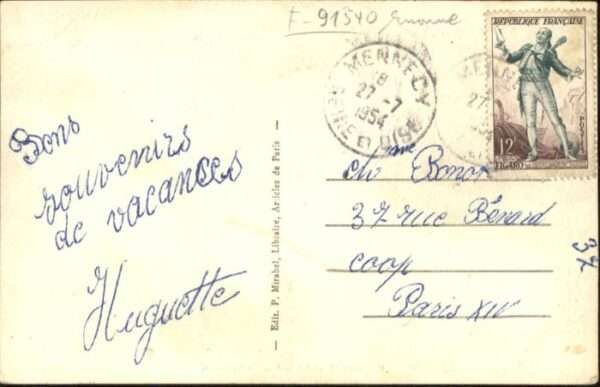 F-91540 Essonne
MENNECY
18
27-7
1954
SEINE ET OISE
REPUBLIQUE FRANÇAISE
POSTES
12F
FIGARO
Bons
souvenirs
de vacances
Huguette
Edit. P. Mirabel, Libraire, Articles de Paris
37 rue Bénard
coop
Paris XIV
37